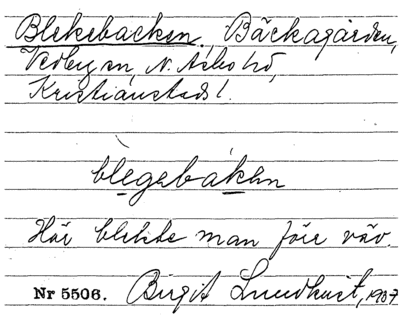 Blekebacken. Bäckagården,
Vedbyn, N. Åsbo hd,
Kristianstads l.
blegebákən
Här blekte man förr väv.
Nr 5506. Birgit Lundkvist, 1937